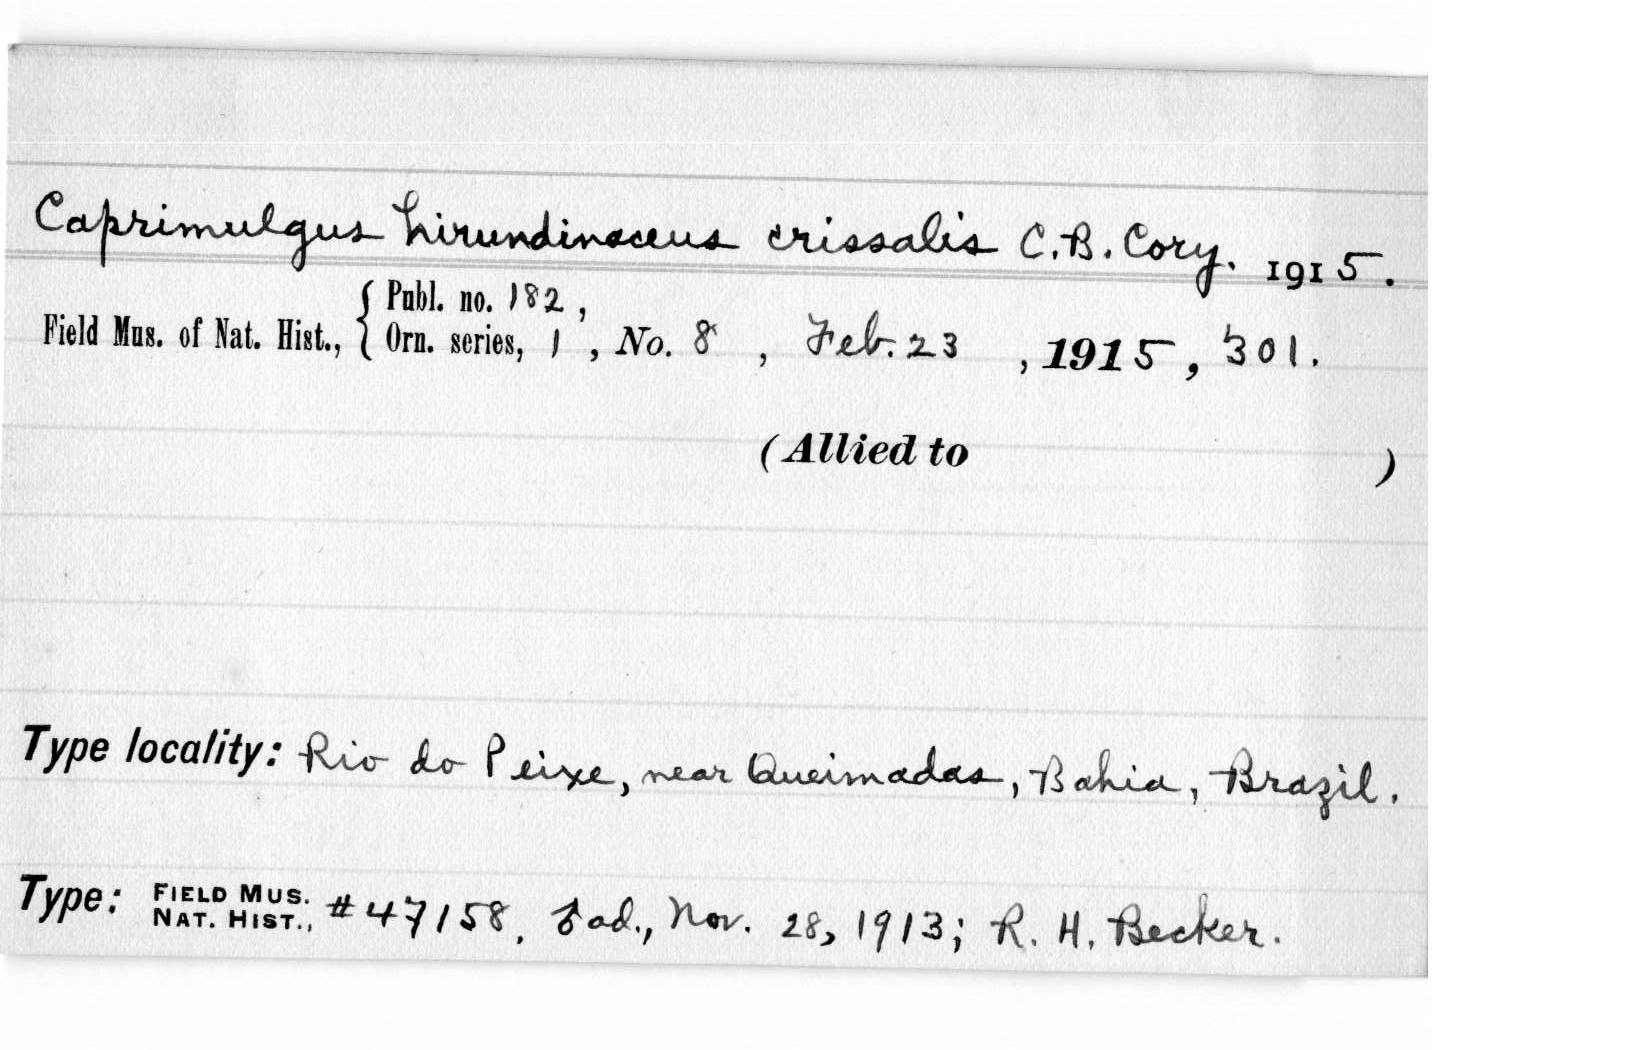 Caprimulgus hirundinaceus crissalis C.B. Cory. 1915.
Publ. no. 182,
Field Mus. of Nat. Hist., { Orn. series, 1, No. 8, Feb. 23, 1915, 301.
(Allied to )
Type locality: Rio do Peixe, near Queimadas, Bahia, Brazil.
Type: FIELD MUS. NAT. HIST., #47158, ad., Nov. 28, 1913; R. H. Becker.